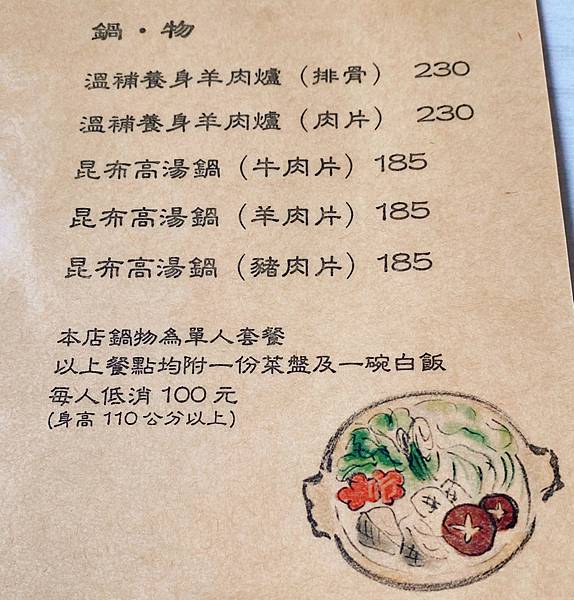 鍋・物
溫補養身羊肉爐（排骨） 230
溫補養身羊肉爐（肉片） 230
昆布高湯鍋（牛肉片）185
昆布高湯鍋（羊肉片）185
昆布高湯鍋（豬肉片）185
本店鍋物為單人套餐
以上餐點均附一份菜盤及一碗白飯
每人低消 100 元
(身高 110 公分以上)